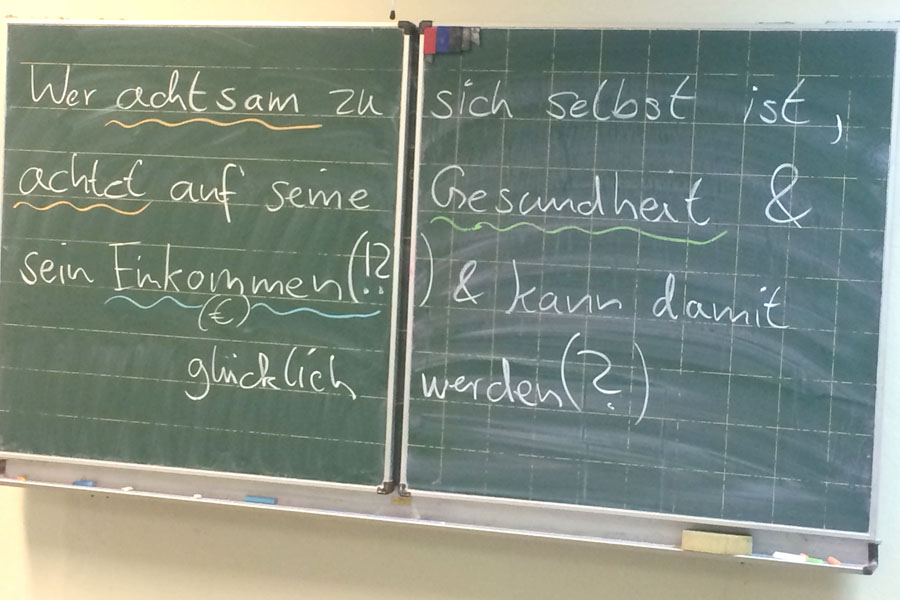 Wer achtsam zu sich selbst ist,
achtet auf seine Gesundheit &
sein Einkommen(!?) & kann damit
(€)
glücklich werden(?)